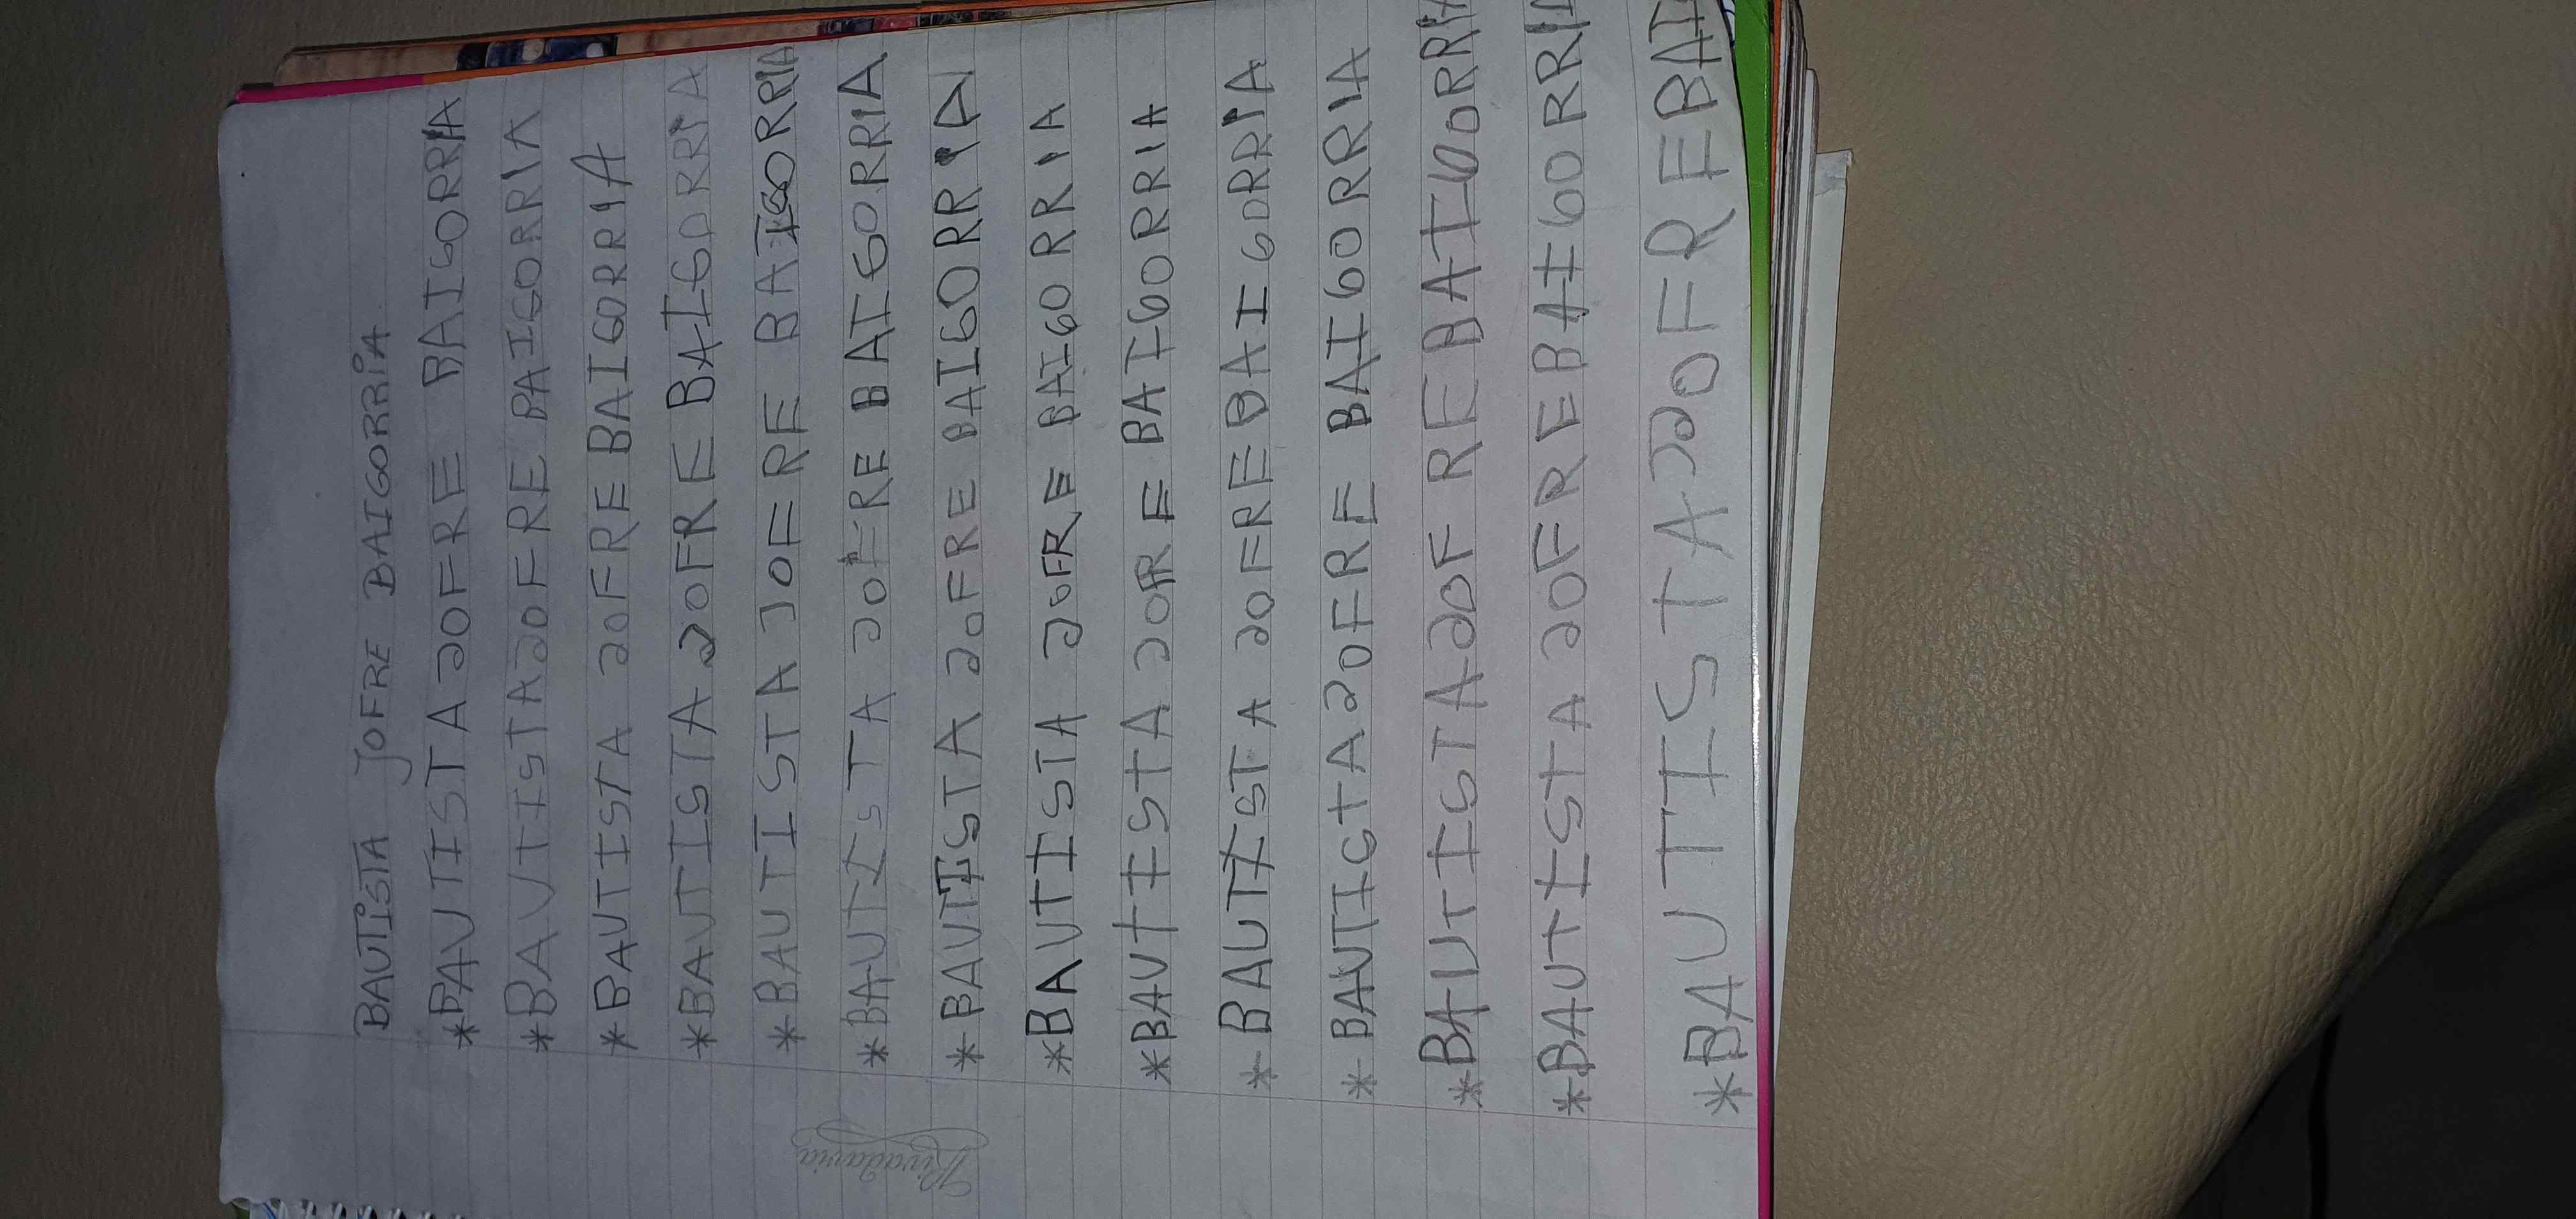 BAUTISTA JOFRE BAIGORRIA
*BAUTISTA JOFRE BAIGORRIA
*BAUTISTA JOFRE BAIGORRIA
*BAUTISTA JOFRE BAIGORRIA
*BAUTISTA JOFRE BAIGORRIA
*BAUTISTA JOFRE BAIGORRIA
*BAUTISTA JOFRE BAIGORRIA
*BAUTISTA JOFRE BAIGORRIA
*BAUTISTA JOFRE BAIGORRIA
*BAUTISTA JORE BAIGORRIA
*BAUTISTA JOFRE BAIGORRIA
*BAUTICTA JOFRE BAIGORRIA
*BAUTISTA JOFRE BAIGORRIA
*BAUTISTA JOFRE BAIGORRIA
*BAUTISTA JOFRE BAI
Rivadavia